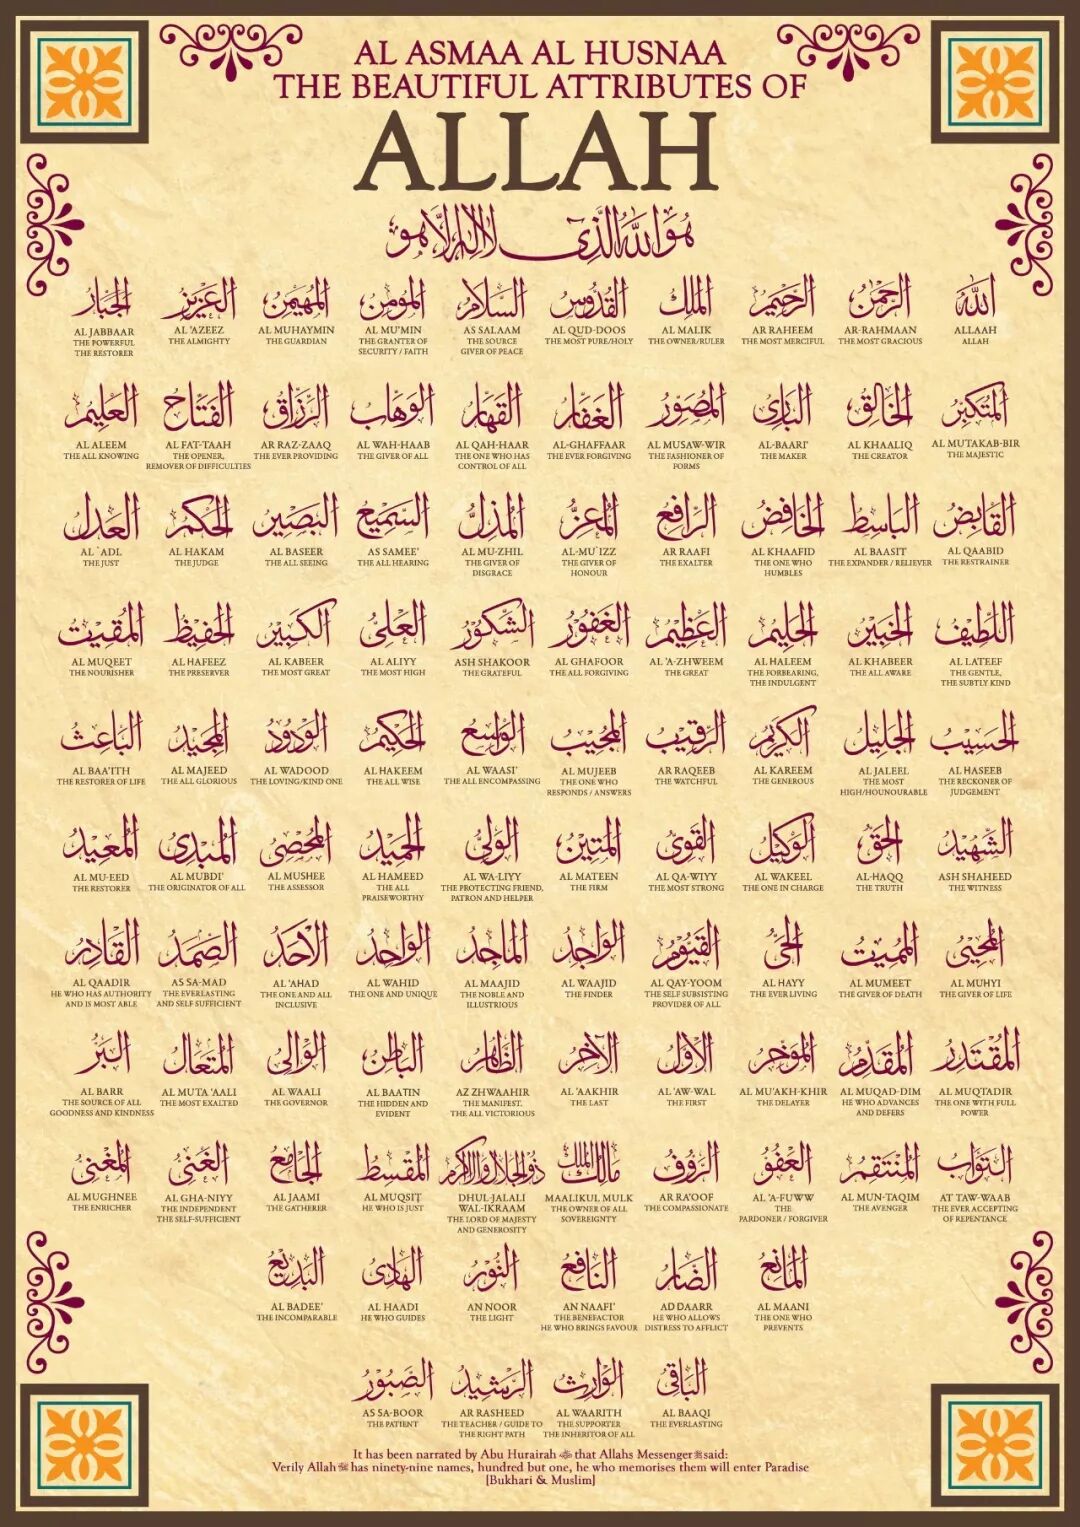 AL ASMAA AL HUSNAA
THE BEAUTIFUL ATTRIBUTES OF
ALLAH
هُوَ اللهُ الَّذِي لَا إِلٰهَ إِلَّا هُوَ
الله
ALLAAH
ALLAH
الرحمن
AR-RAHMAAN
THE MOST GRACIOUS
الرحيم
AR RAHEEM
THE MOST MERCIFUL
الملك
AL MALIK
THE OWNER/RULER
القدوس
AL QUD-DOOS
THE MOST PURE/HOLY
السلام
AS SALAAM
THE SOURCE
GIVER OF PEACE
المومن
AL MU'MIN
THE GRANTER OF
SECURITY / FAITH
المهيمن
AL MUHAYMIN
THE GUARDIAN
العزيز
AL 'AZEEZ
THE ALMIGHTY
الجبار
AL JABBAAR
THE POWERFUL
THE RESTORER
المتكبر
AL MUTAKAB-BIR
THE MAJESTIC
الخالق
AL KHAALIQ
THE CREATOR
البارى
AL-BAARI'
THE MAKER
المصور
AL MUSAW-WIR
THE FASHIONER OF
FORMS
الغفار
AL-GHAFFAAR
THE EVER FORGIVING
القهار
AL QAH-HAAR
THE ONE WHO HAS
CONTROL OF ALL
الوهاب
AL WAH-HAAB
THE GIVER OF ALL
الرزاق
AR RAZ-ZAAQ
THE EVER PROVIDING
الفتاح
AL FAT-TAAH
THE OPENER,
REMOVER OF DIFFICULTIES
العليم
AL ALEEM
THE ALL KNOWING
القابض
AL QAABID
THE RESTRAINER
الباسط
AL BAASIT
THE EXPANDER / RELIEVER
الخافض
AL KHAAFID
THE ONE WHO
HUMBLES
الرافع
AR RAAFI
THE EXALTER
المعز
AL-MU`IZZ
THE GIVER OF
HONOUR
المذل
AL MU-ZHIL
THE GIVER OF
DISGRACE
السميع
AS SAMEE'
THE ALL HEARING
البصير
AL BASEER
THE ALL SEEING
الحكم
AL HAKAM
THE JUDGE
العدل
AL `ADL
THE JUST
اللطيف
AL LATEEF
THE GENTLE,
THE SUBTLY KIND
الخبير
AL KHABEER
THE ALL AWARE
الحليم
AL HALEEM
THE FORBEARING,
THE INDULGENT
العظيم
AL 'A-ZHWEEM
THE GREAT
الغفور
AL GHAFOOR
THE ALL FORGIVING
الشكور
ASH SHAKOOR
THE GRATEFUL
العلى
AL ALIYY
THE MOST HIGH
الكبير
AL KABEER
THE MOST GREAT
الحفيظ
AL HAFEEZ
THE PRESERVER
المقيت
AL MUQEET
THE NOURISHER
الحسيب
AL HASEEB
THE RECKONER OF
JUDGEMENT
الجليل
AL JALEEL
THE MOST
HIGH/HOUNOURABLE
الكريم
AL KAREEM
THE GENEROUS
الرقيب
AR RAQEEB
THE WATCHFUL
المجيب
AL MUJEEB
THE ONE WHO
RESPONDS / ANSWERS
الواسع
AL WAASI'
THE ALL ENCOMPASSING
الحكيم
AL HAKEEM
THE ALL WISE
الودود
AL WADOOD
THE LOVING/KIND ONE
المجيد
AL MAJEED
THE ALL GLORIOUS
الباعث
AL BAA'ITH
THE RESTORER OF LIFE
الشهيد
ASH SHAHEED
THE WITNESS
الحق
AL-HAQQ
THE TRUTH
الوكيل
AL WAKEEL
THE ONE IN CHARGE
القوى
AL QA-WIYY
THE MOST STRONG
المتين
AL MATEEN
THE FIRM
الولى
AL WA-LIYY
THE PROTECTING FRIEND,
PATRON AND HELPER
الحميد
AL HAMEED
THE ALL
PRAISEWORTHY
المحصى
AL MUSHEE
THE ASSESSOR
المبدى
AL MUBDI'
THE ORIGINATOR OF ALL
المعيد
AL MU-EED
THE RESTORER
المحيى
AL MUHYI
THE GIVER OF LIFE
المميت
AL MUMEET
THE GIVER OF DEATH
الحى
AL HAYY
THE EVER LIVING
القيوم
AL QAY-YOOM
THE SELF SUBSISTING
PROVIDER OF ALL
الواجد
AL WAAJID
THE FINDER
الماجد
AL MAAJID
THE NOBLE AND
ILLUSTRIOUS
الواحد
AL WAHID
THE ONE AND UNIQUE
الأحد
AL 'AHAD
THE ONE AND ALL
INCLUSIVE
الصمد
AS SA-MAD
THE EVERLASTING
AND SELF SUFFICIENT
القادر
AL QAADIR
HE WHO HAS AUTHORITY
AND IS MOST ABLE
المقتدر
AL MUQTADIR
THE ONE WITH FULL
POWER
المقدم
AL MUQAD-DIM
HE WHO ADVANCES
AND DEFERS
الموخر
AL MU'AKH-KHIR
THE DELAYER
الأول
AL 'AW-WAL
THE FIRST
الآخر
AL 'AAKHIR
THE LAST
الظاهر
AZ ZHWAAHIR
THE MANIFEST,
THE ALL VICTORIOUS
الباطن
AL BAATIN
THE HIDDEN AND
EVIDENT
الوالى
AL WAALI
THE GOVERNOR
المتعال
AL MUTA 'AALI
THE MOST EXALTED
البر
AL BARR
THE SOURCE OF ALL
GOODNESS AND KINDNESS
التواب
AT TAW-WAAB
THE EVER ACCEPTING
OF REPENTANCE
المنتقم
AL MUN-TAQIM
THE AVENGER
العفو
AL 'A-FUWW
THE
PARDONER / FORGIVER
الرؤف
AR RA'OOF
THE COMPASSIONATE
مالك الملك
MAALIKUL MULK
THE OWNER OF ALL
SOVEREIGNTY
ذو الجلال والاكرام
DHUL-JALALI
WAL-IKRAAM
THE LORD OF MAJESTY
AND GENEROSITY
المقسط
AL MUQSIT
HE WHO IS JUST
الجامع
AL JAAMI
THE GATHERER
الغنى
AL GHA-NIYY
THE INDEPENDENT
THE SELF-SUFFICIENT
المغنى
AL MUGHNEE
THE ENRICHER
المانع
AL MAANI
THE ONE WHO
PREVENTS
الضار
AD DAARR
HE WHO ALLOWS
DISTRESS TO AFFLICT
النافع
AN NAAFI'
THE BENEFACTOR
HE WHO BRINGS FAVOUR
النور
AN NOOR
THE LIGHT
الهادى
AL HAADI
HE WHO GUIDES
البديع
AL BADEE'
THE INCOMPARABLE
الباقى
AL BAAQI
THE EVERLASTING
الوارث
AL WAARITH
THE SUPPORTER
THE INHERITOR OF ALL
الرشيد
AR RASHEED
THE TEACHER / GUIDE TO
THE RIGHT PATH
الصبور
AS SA-BOOR
THE PATIENT
It has been narrated by Abu Hurairah that Allahs Messenger ﷺ said:
Verily Allah has ninety-nine names, hundred but one, he who memorises them will enter Paradise
[Bukhari & Muslim]